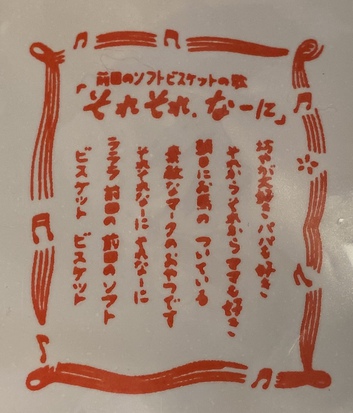 前田のソフトビスケットの歌
「それそれ、なーに」
坊やが大好き パパも好き
それからそれから ママも好き
朝日にお馬の ついている
素敵なマークのおやつです
それそれなーに それなーに
ラララ 前田の 前田のソフト
ビスケット ビスケット